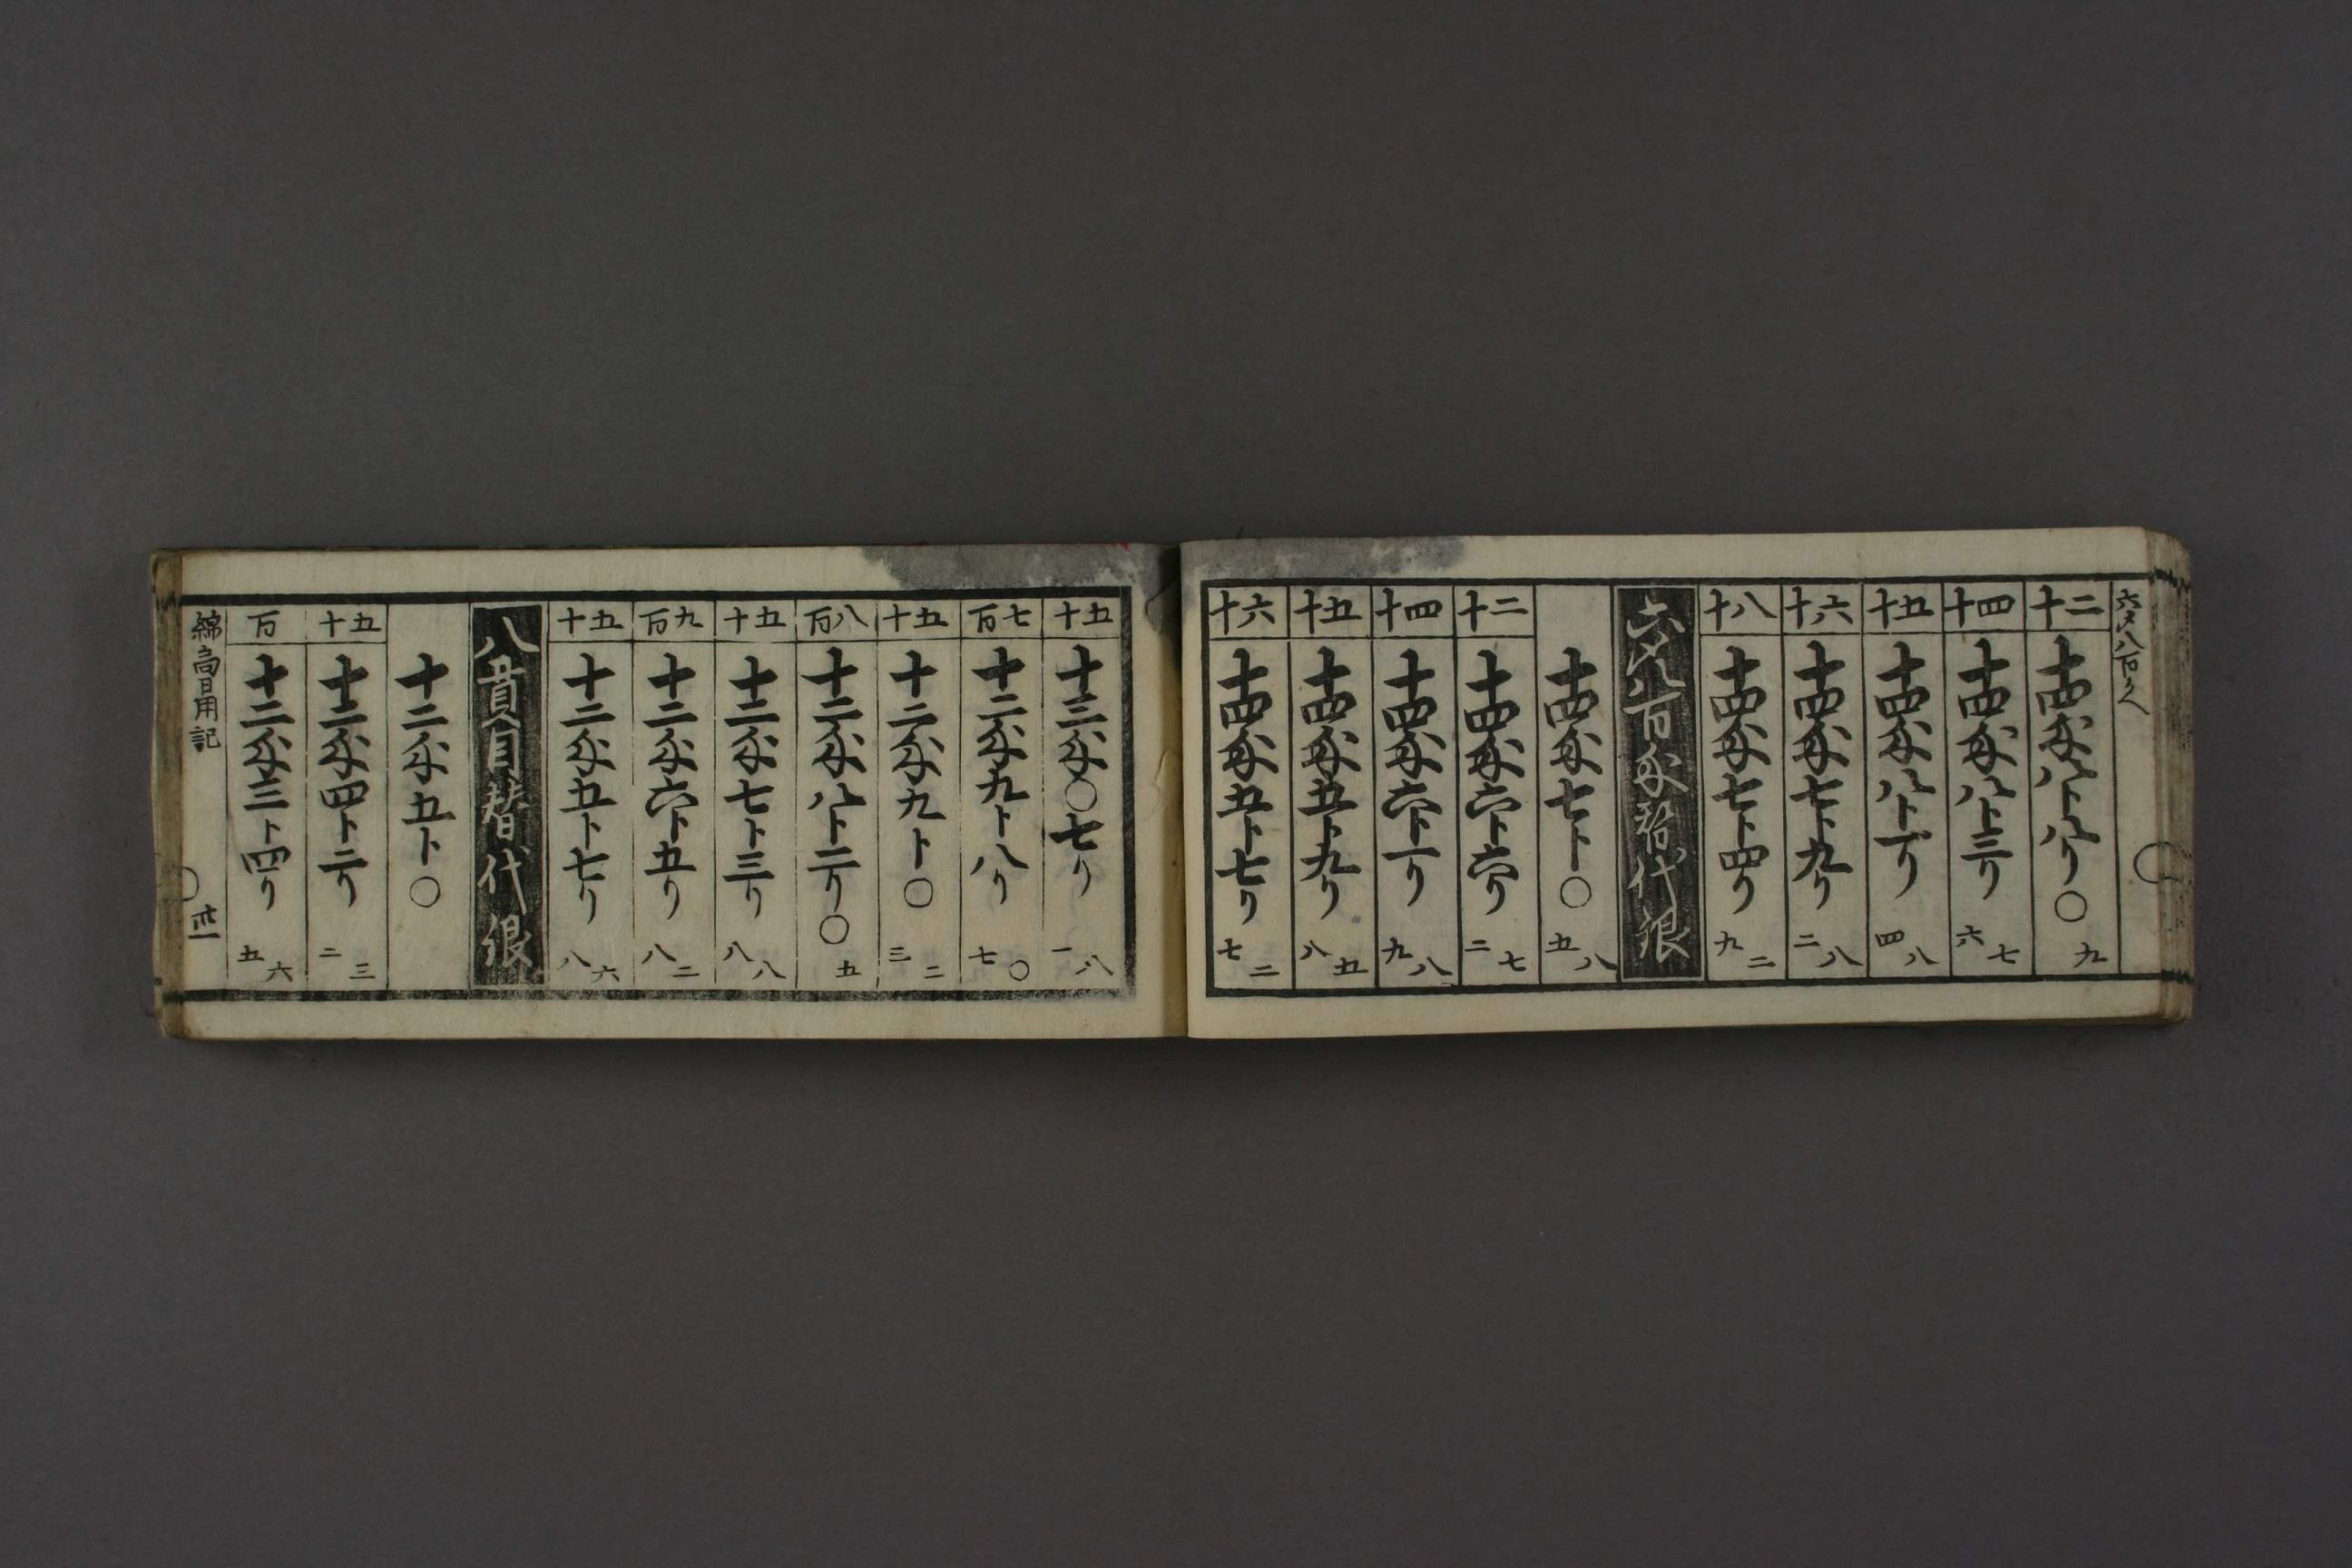 六〆八百匁
二十 十四匁八ト八リ〇九
四十 十四匁八ト三リ六七
五十 十四匁八ト一リ四八
六十 十四匁七ト九リ二八
八十 十四匁七ト四リ九二
六〆八百匁替代銀
十四匁七ト〇五八
二十 十四匁六ト六リ二七
四十 十四匁六ト一リ九八
五十 十四匁五ト九リ八五
六十 十四匁五ト七リ七二
五十 十三匁〇七リ一八
七百 十二匁九ト八リ七〇
五十 十二匁九ト〇三二
八百 十二匁八ト二リ〇五
五十 十二匁七ト三リ八八
九百 十二匁六ト五リ八二
五十 十二匁五ト七リ八六
八貫目替代銀
十二匁五ト〇
五十 十二匁四ト二リ二三
百 十二匁三ト四リ五六
綿高日用記 卅一